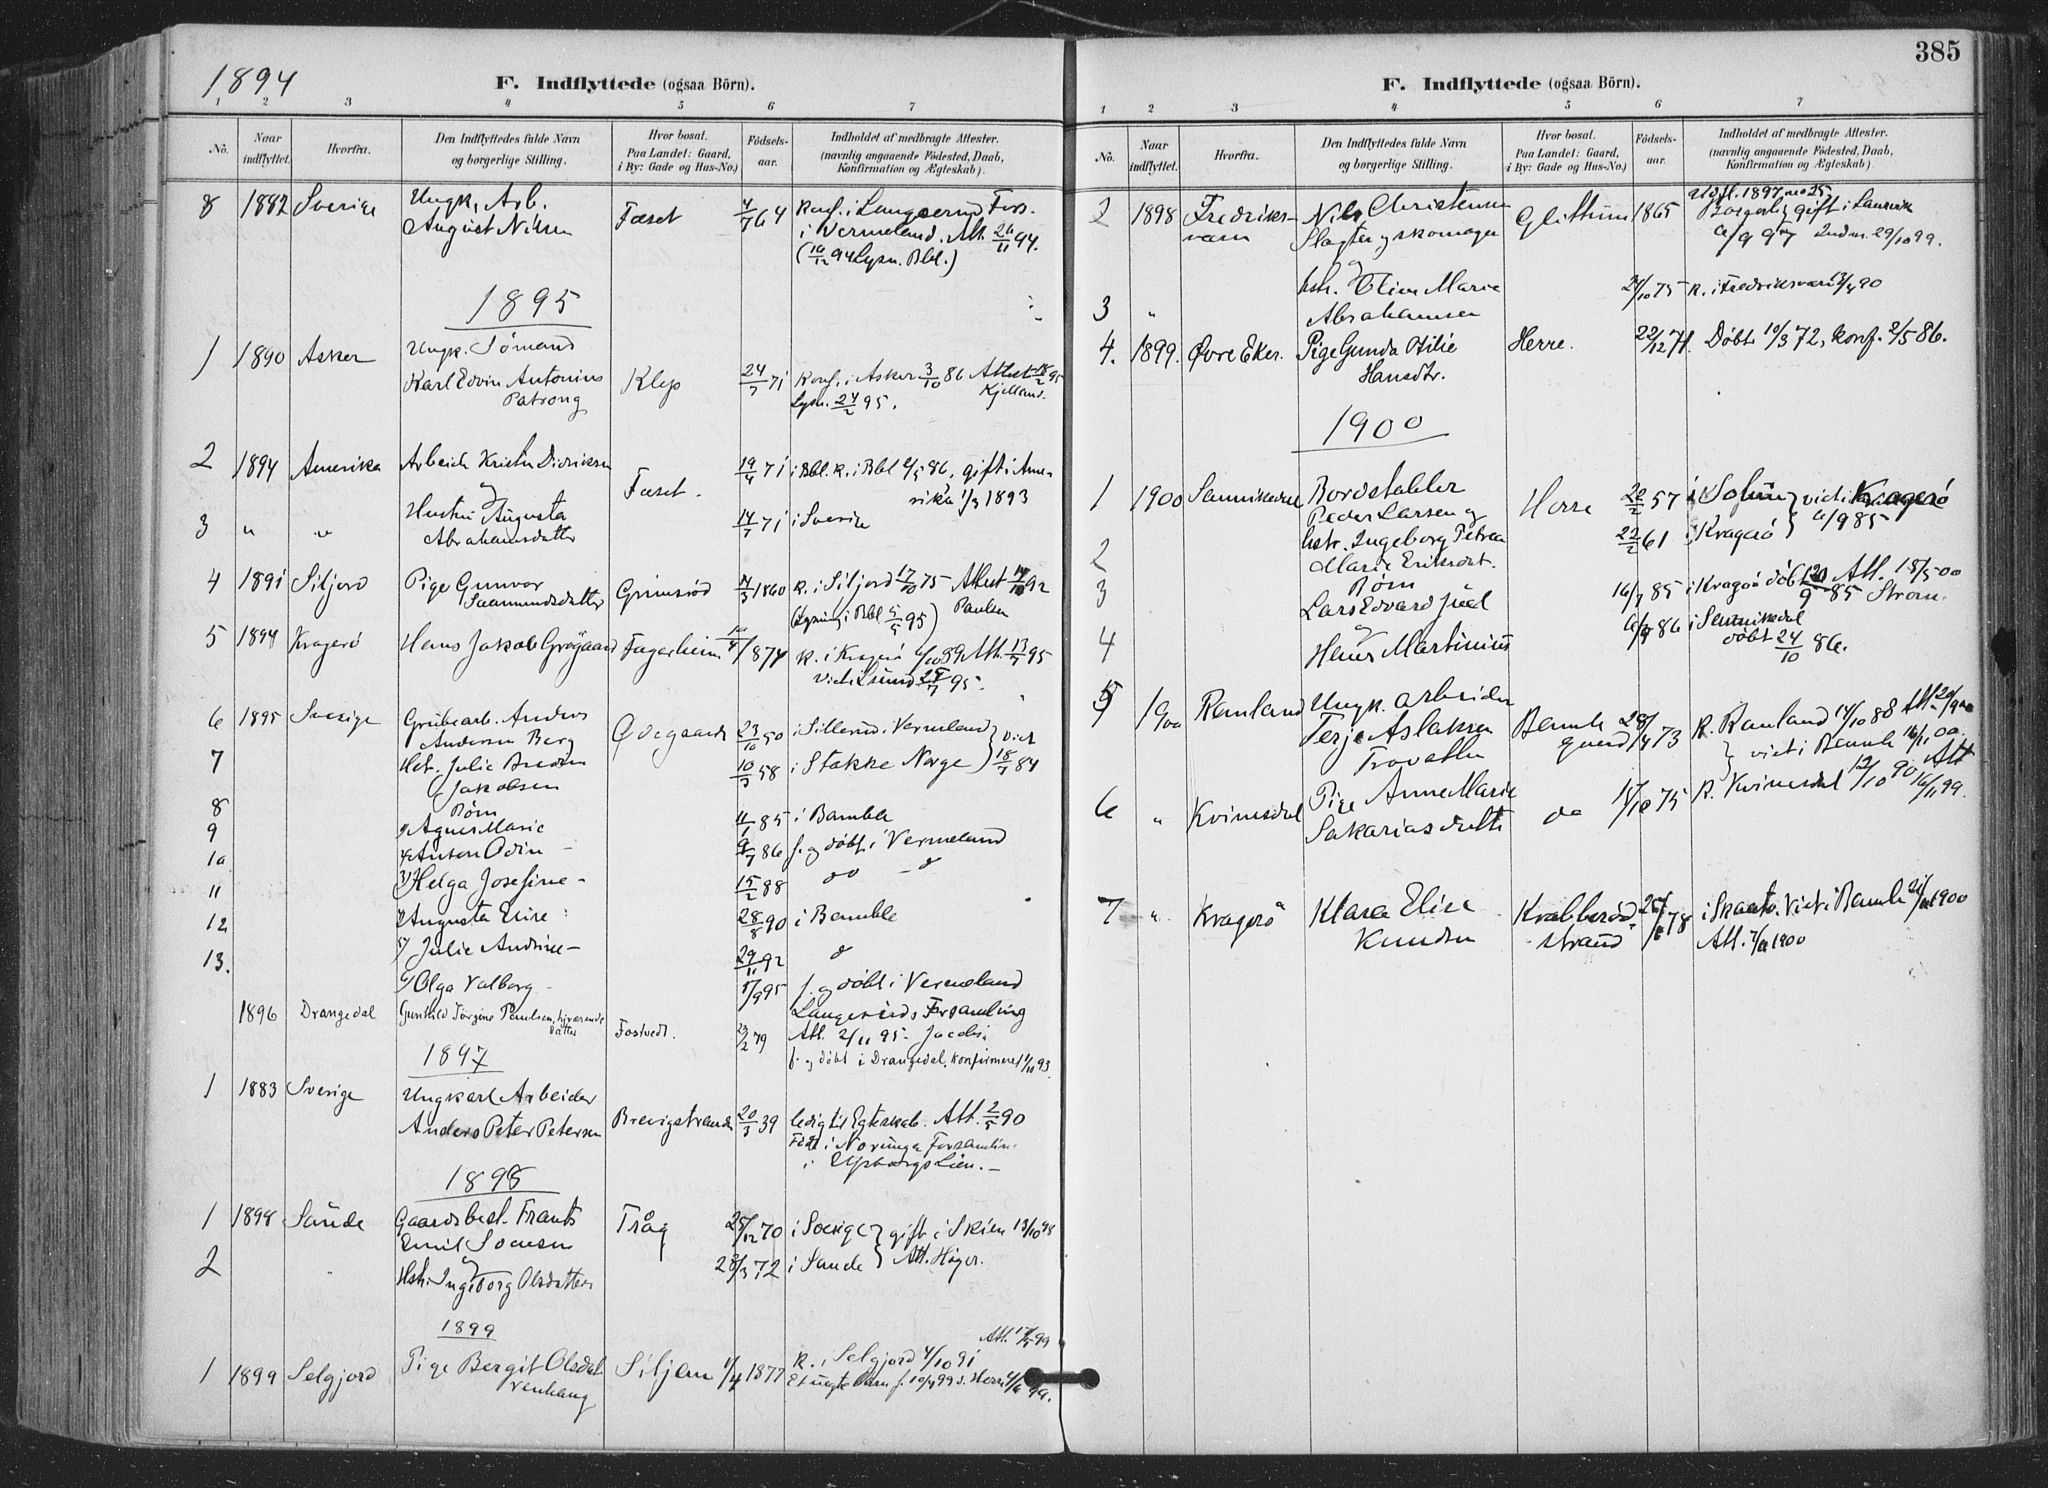 1894
F. Indflyttede (ogsaa Börn).
1 2 3 4 5 6 7
No. Naar indflyttet. Hvorfra. Den Indflyttedes fulde Navn og borgerlige Stilling. Hvor bosat. Paa Landet: Gaard, i By: Gade og Hus-No.) Födsels-aar. Indholdet af medbragte Attester. (navnlig angaaende Födested, Daab, Konfirmation og Ægteskab).
8 1882 Sverige Ungk. Arb.
August Nilsen Fæset 64 Konf. i
i Vermeland. Att. 26/11 94.
(16/12 94 Lysn. Bbl.)
1895
1 1890 Asker Ungk. Sömand
Karl Edvin Antonius Klep 24/7 71 Konf. i Asker 3/10 86 Attest 18/2 95
Patrong Lysn. 24/2 95. Kjelland.
2 1894 Amerika Arbeid. Kristen Didriksen Fæset. 19/4 71 i Bbl. K. i Bbl 86, gift i Ame-
og rika 1893
3 " " Hustru Augusta 14/7 71 i Sverige
Abrahamsdatter
4 1891 Siljord Pige Gunvor Grimsröd 1860 K. i Siljord 17/10 75 Attest 92
Saamundsdatter (Lysning i Bbl 95) Paulsen
5 1894 Kragerö Hans Jakob Grögaard Fagerheim 1874 K. i Kragerö 89. Att. 13/7 95
Viet i Lunde 95.
6 1895 Sverige Grubearb. Anders Övegaarde 23/10 50 i Sillerud i Vermeland } viet
Andersen Berg
7 Hst. Julie 10/3 58 i Stokke Norge } 18/7 84
Jakobsen
Börn
8 1/ Agnes Marie 85 i Bamble
9 2/ Anton Odin — 86 f. og döbt i Vermeland
10 3/ Helga Josefine — 15/2 88 do — d
11 4/ Augusta Elise 28/8 90 i Bamble
12 5/ Julie Andrine — 29/11 92 d
13. 6/ Olga Valborg — 17/9 95 f. og döbt i Vermeland
Forsamling
1896 Drangedal Gunhild Jörgine Paulsen, hjværende datter Fostvedt. 23/2 79 Att. 2/11 95. Jacobi.
f. og döbt i Drangedal, konfirmeret 1/10 93.
1897
1 1883 Sverige Ungkarl Arbeider
Anders Peter Petersen Brevigstrande 20/3 39 ledig til Egteskab. Att. 2/5 90
Föd i Norunga Forsamlin.
i Elfsborgs Län. —
1898
1 1898 Sande Gaardsbest. Frants Traag 25/12 70 i Sverige } gift i Skien 13/10 98
Emil Svensen
2 " og
Hst. Ingeborg Olsdatter 28/3 72 i Sande } Att. Höyer.
1899
Att. 99
1 1899 Selgjord Pige Bergit Olsdat. Siljan 1/4 1877 K. i Selgjord 4/10 91
Venhaug Et uægte barn f. 10/4 99 99.
385
F. Indflyttede (ogsaa Börn).
1 2 3 4 5 6 7
No. Naar indflyttet. Hvorfra. Den Indflyttedes fulde Navn og borgerlige Stilling. Hvor bosat. Paa Landet: Gaard, i By: Gade og Hus-No.) Födsels-aar. Indholdet af medbragte Attester. (navnlig angaaende Födested, Daab, Konfirmation og Ægteskab).
Udfl. 1897 no 25
2 1898 Fredriks- Nils Christensen Glittum 1865 Borgerlig gift i Laurvik
værn Slagter og skomager 97 Indm. 29/10 99.
og
3 " hstr. Eline Marie 24/10 75 K. i Fredriksværn 90
Abrahamsen
4. 1899. Övre Eker. Pige Gunda Otilie Herre. 22/12 71. Döbt 10/3 72, konf. 2/5 86.
Hansdtr.
1900
1 1900 Sannikedal Bordstabler Herre 20/2 57 i Solum } viet i Kragerö
Peder Larsen og
2 hstr. Ingeborg Petrea 22/2 61 i Kragerö } 85
Marie Eriksdat.
Börn
3 Lars Edvard Juel 85 i Kragerö döbt 20/9 85 Att. 18/5 00 Ström.
og
4 Hans Martinius 86 i Sannikedal
döbt 24/10 86.
5 1900 Rauland Ungk. arbeider Bamble 28/4 73 K. Rauland 14/10 88 Att.
Terje Aslaksen } viet i Bamle 00
Trovatten
6 " Kvinesdal Pige Anne Marie do 17/10 75 K. Kvinesdal 12/10 90 Att 99.
Sakariasdatte
7 " Kragerö Klara Elise Krabberöd 78 i Skaatö. Viet i Bamle 1900
Knudsen strand Att. 1900